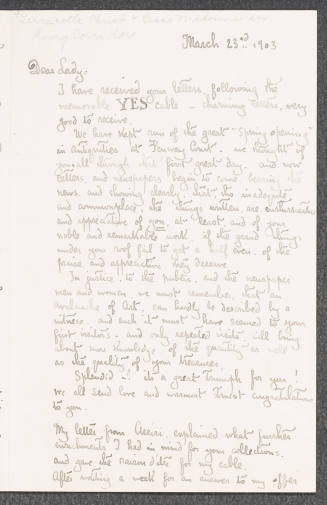 Terracotta Christ &
Long Corridor
March 23rd 1903
Dear Lady:
I have received your letters, following the
memorable YES cable — charming letters, very
good to receive.
We have kept run of the great "Spring opening"
in antiquities at Fenway Court. We thought of
you all through that first great day. and now
letters, and newspapers begin to come bearing the
news, and showing clearly that tho' inadequate
and commonplace, the things written, are enthusiastic
and appreciative of you, at least, and of your
noble and remarkable work if the grand things
under your roof fail to get a half even, of the
praise and appreciation they deserve.
In justice, to the public, and the newspaper
men and women we must remember, that an
avalanche of Art, can hardly be described by a
witness, and such it must have seemed to your
first visitors. and only repeated visits will bring
about more knowledge of the quantity as well
as the quality of your treasures.
Splendid it is! its a great triumph for you!
we all send love and warmest truest congratulations
to you.
My letter from Assisi, explained what further
enrichments I had in mind for your collections,
and gave the raison d'etre for my cable.
After waiting a week for an answer to my offer